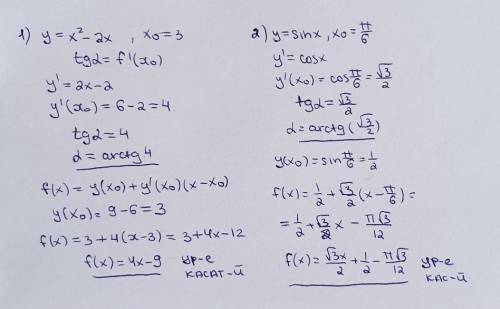 1) y = x² - 2x , x₀ = 3
tg2 = f'(x₀)
y' = 2x - 2
y'(x₀) = 6 - 2 = 4
tg2 = 4
2 = arctg 4
f(x) = y(x₀) + y'(x₀)(x - x₀)
y(x₀) = 9 - 6 = 3
f(x) = 3 + 4(x - 3) = 3 + 4x - 12
f(x) = 4x - 9 ур-е
касат-й
2) y = sinx , x₀ = π/6
y' = cosx
y'(x₀) = cos π/6 = √3/2
tg2 = √3/2
2 = arctg (√3/2)
y(x₀) = sin π/6 = 1/2
f(x) = 1/2 + √3/2 (x - π/6) =
= 1/2 + √3/2 x - π√3/12
f(x) = √3x/2 + 1/2 - π√3/12 ур-е
кас-й